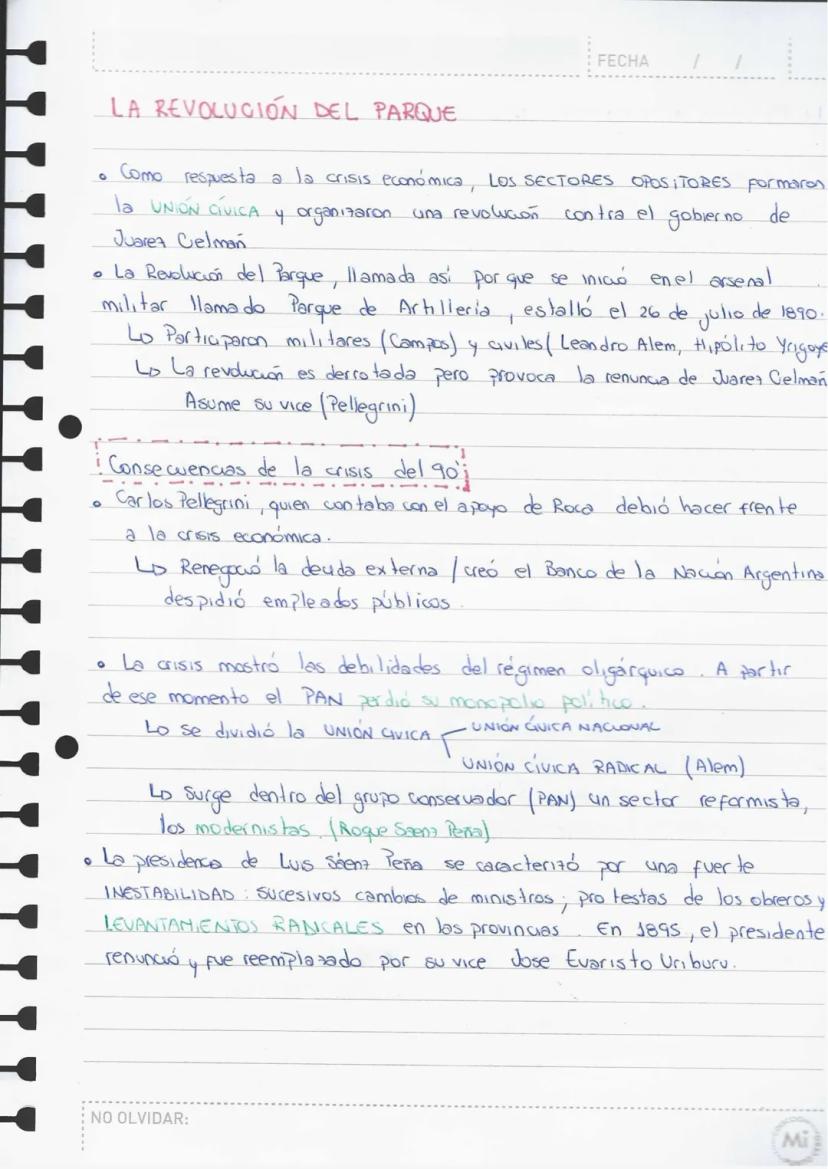 FECHA / /
LA REVOLUCIÓN DEL PARQUE
• Como respuesta a la crisis económica, LOS SECTORES OPOSITORES formaron
la UNIÓN CÍVICA y organizaron una revolución contra el gobierno de
Juarez Celman
• La Revolución del Parque, llamada así por que se inició en el arsenal
militar llamado Parque de Artilleria, estalló el 26 de julio de 1890.
↳ Participaron militares (Campos) y civiles (Leandro Alem, Hipólito Yrigoye
↳ La revolución es derrotada pero provoca la renuncia de Juarez Celman
Asume su vice (Pellegrini)
Consecuencias de la crisis del 90'
• Carlos Pellegrini, quien contaba con el apoyo de Roca debió hacer frente
a la crisis económica.
↳ Renegoció la deuda externa / creó el Banco de la Nación Argentina
despidió empleados públicos.
• La crisis mostró las debilidades del régimen oligárquico. A partir
de ese momento el PAN perdió su monopolio político.
↳ se dividió la UNIÓN CIVICA UNIÓN CÍVICA NACIONAL
UNIÓN CÍVICA RADICAL (Alem)
↳ Surge dentro del grupo conservador (PAN) un sector reformista,
los modernistas. (Roque Saenz Peña)
• La presidencia de Luis Sáenz Peña se caracterizó por una fuerte
INESTABILIDAD: sucesivos cambios de ministros; protestas de los obreros y
LEVANTAMIENTOS RADICALES en las provincias. En 1895, el presidente
renunció y fue reemplazado por su vice Jose Evaristo Uriburu.
NO OLVIDAR:
Mi